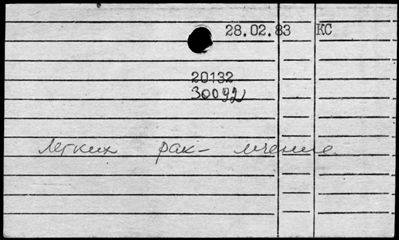 28.02.83 КС
20132
30092
легких рак- лечение